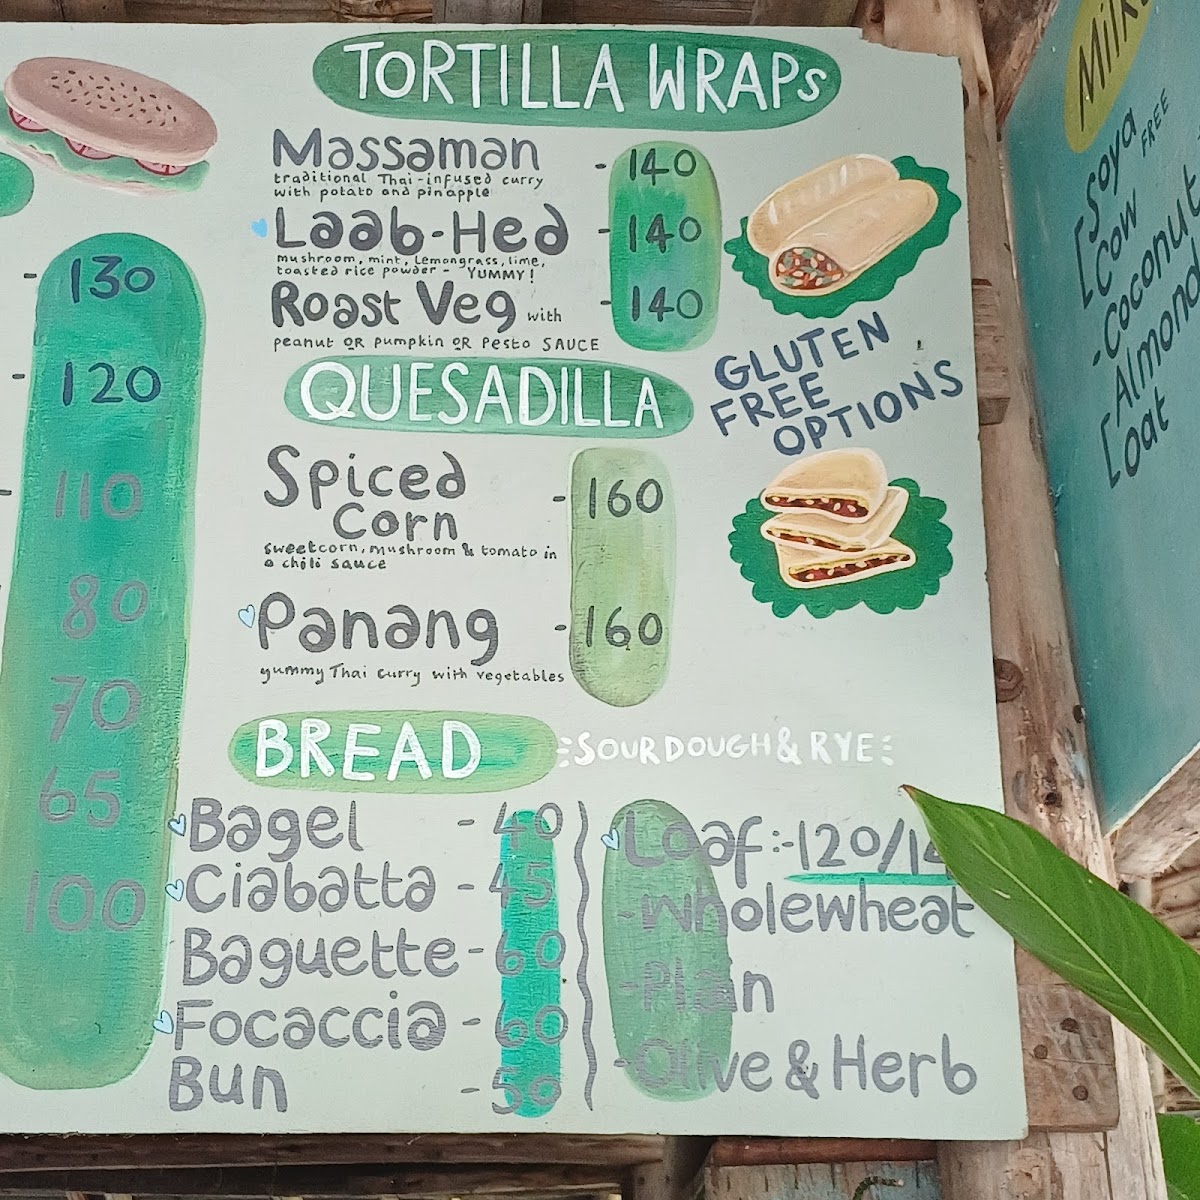 TORTILLA WRAPS
Massaman - 140
traditional Thai-infused curry
with potato and pinapple
Laab-Hed - 140
mushroom, mint, lemongrass, lime,
toasted rice powder - YUMMY!
Roast Veg with - 140
peanut OR pumpkin OR Pesto SAUCE
GLUTEN
FREE
OPTIONS
QUESADILLA
Spiced
Corn - 160
sweetcorn, mushroom & tomato in
a chili sauce
Panang - 160
yummy Thai curry with vegetables
BREAD
SOURDOUGH & RYE
Bagel - 40
Ciabatta - 45
Baguette - 60
Focaccia - 60
Bun - 50
Loaf:- 120/
- Wholewheat
- Plan
- Olive & Herb
- 130
- 120
- 110
80
70
65
100
Milk
Soya
FREE
Cow
- Coconut
Almond
Oat